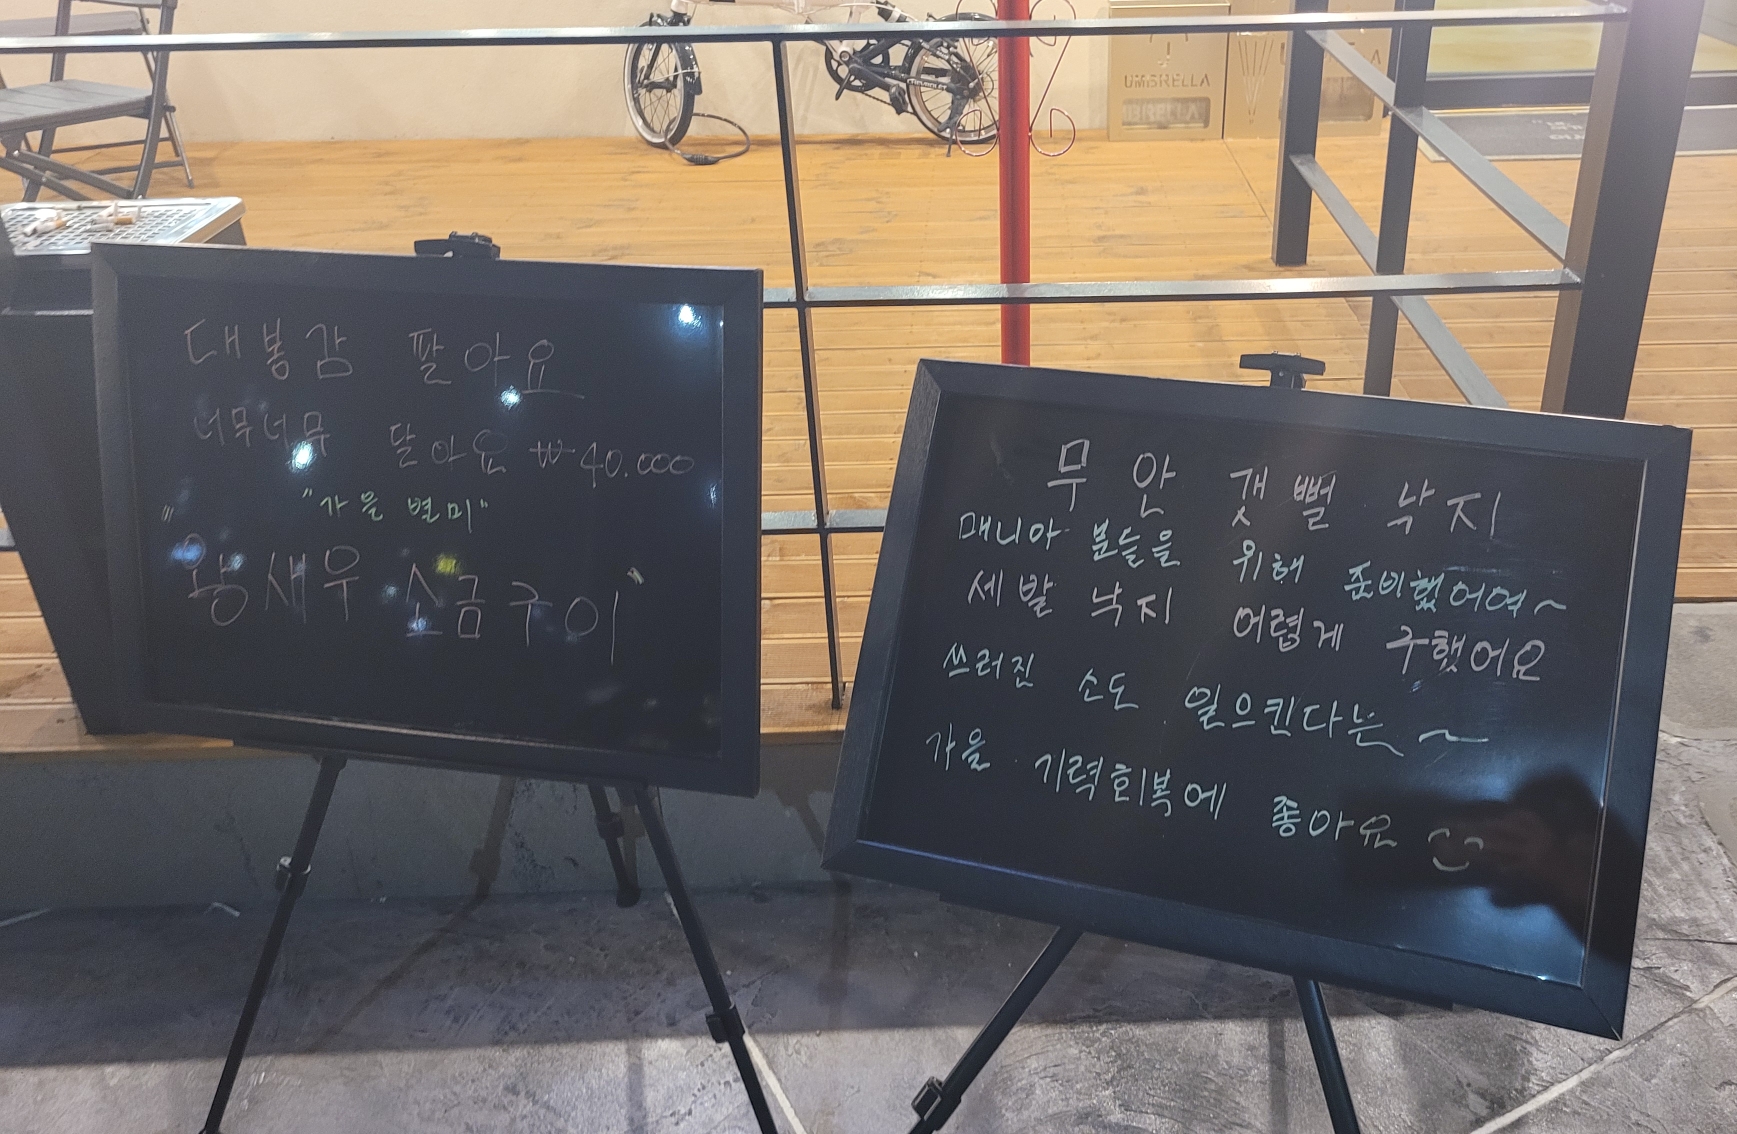 UMBRELLA
BRELLA
대봉감 팔아요
너무너무 달아요 ₩40.000
"가을 별미"
"왕새우 소금구이"
무안 갯뻘 낙지
매니아 분들을 위해 준비했어여~
세발 낙지 어렵게 구했어요
쓰러진 소도 일으킨다는~
가을 기력회복에 좋아요